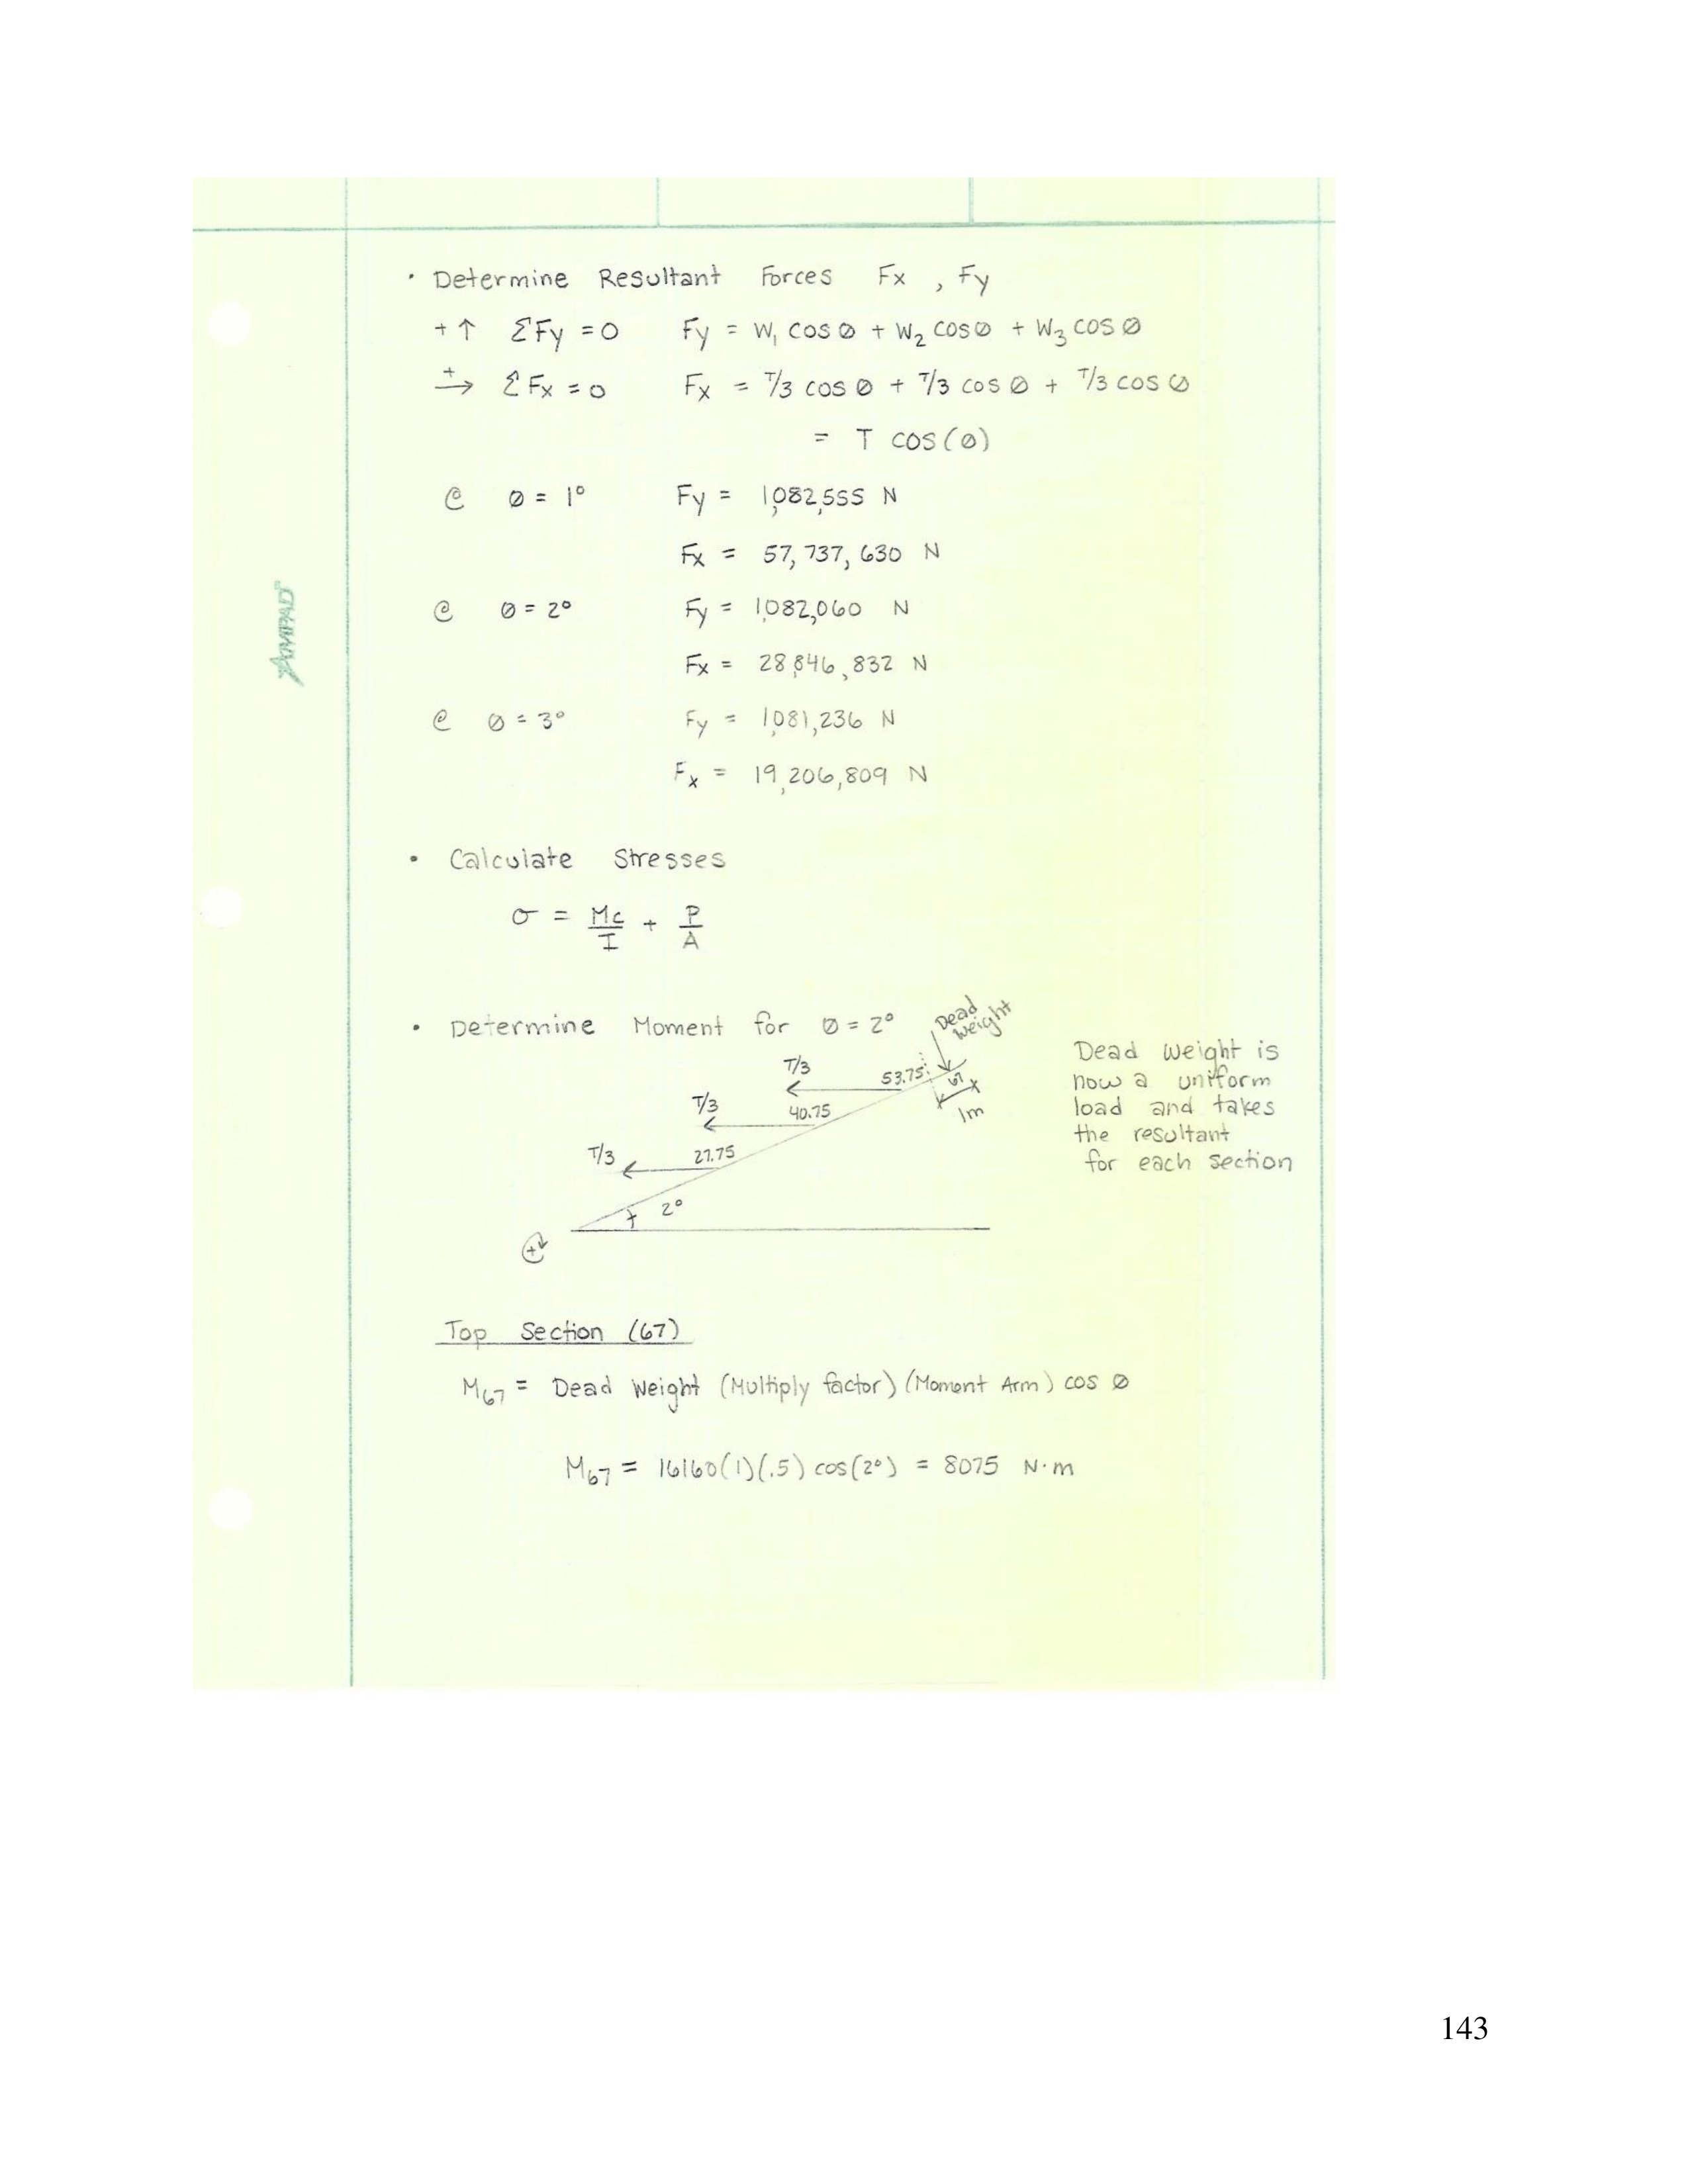 • Determine Resultant Forces Fx , Fy
+↑ ΣFy = 0 Fy = W₁ cos Ø + W₂ cos Ø + W₃ cos Ø
+→ ΣFx = 0 Fx = T/3 cos Ø + T/3 cos Ø + T/3 cos Ø
= T cos(Ø)
@ Ø = 1° Fy = 1,082,555 N
Fx = 57,737,630 N
@ Ø = 2° Fy = 1,082,060 N
Fx = 28,846,832 N
@ Ø = 3° Fy = 1,081,236 N
Fx = 19,206,809 N
AMPAD
• Calculate Stresses
σ = Mc/I + P/A
• Determine Moment for Ø = 2°
Dead
weight
T/3 53.75
67
1m
T/3 40.75
T/3 27.75
2°
+
Dead weight is
now a uniform
load and takes
the resultant
for each section
Top Section (67)
M₆₇ = Dead Weight (Multiply factor) (Moment Arm) cos Ø
M₆₇ = 16160(1)(.5) cos(2°) = 8075 N·m
143